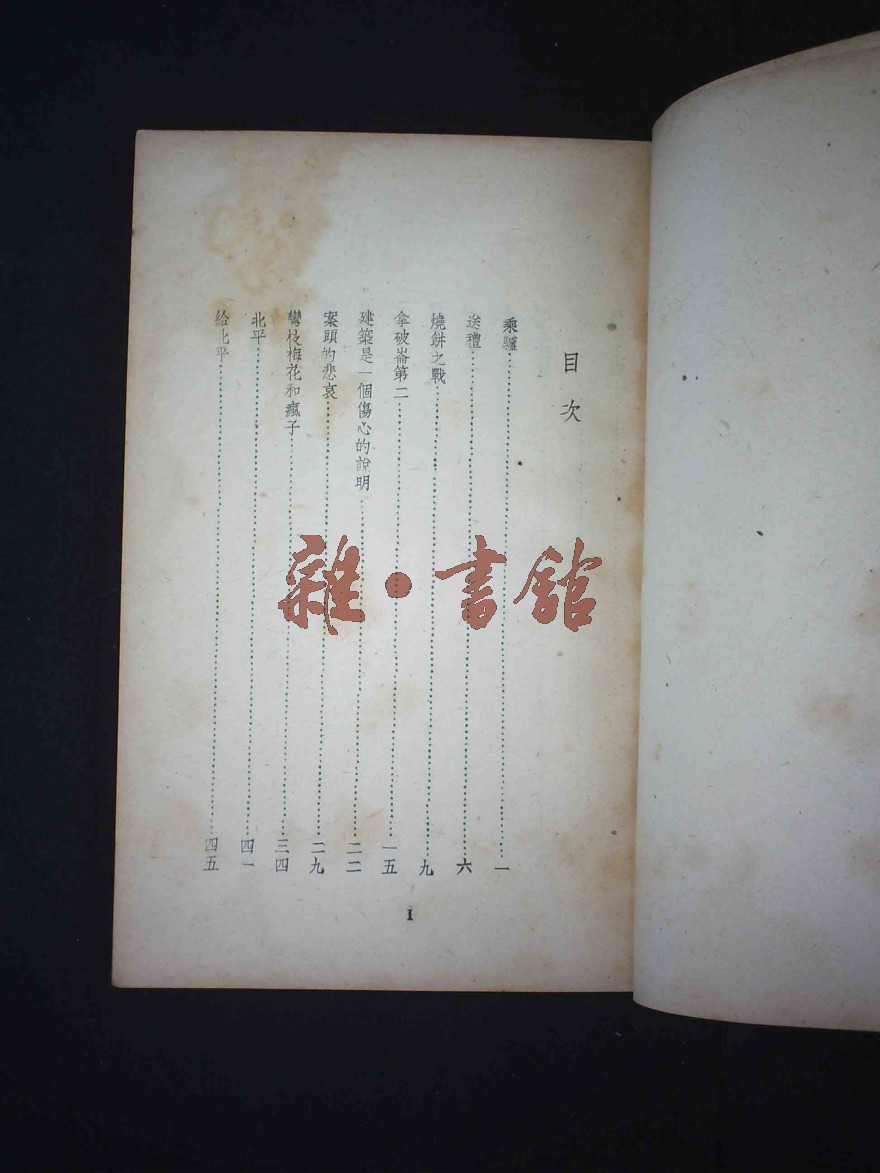 目次
乘驢⋯⋯⋯⋯⋯⋯⋯⋯一
送禮⋯⋯⋯⋯⋯⋯⋯⋯六
燒餅之戰⋯⋯⋯⋯⋯⋯⋯⋯九
拿破崙第二⋯⋯⋯⋯⋯⋯⋯⋯一五
建築是一個傷心的說明⋯⋯⋯⋯⋯⋯⋯⋯二二
案頭的悲哀⋯⋯⋯⋯⋯⋯⋯⋯二九
彎枝梅花和瘋子⋯⋯⋯⋯⋯⋯⋯⋯三四
北平⋯⋯⋯⋯⋯⋯⋯⋯四一
給北平⋯⋯⋯⋯⋯⋯⋯⋯四五
I
雜·書館